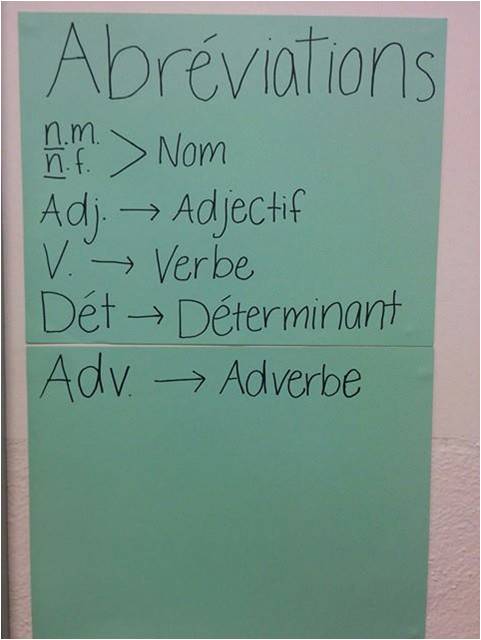 Abréviations
n.m.
n.f. > Nom
Adj. → Adjectif
V. → Verbe
Dét → Déterminant
Adv. → Adverbe